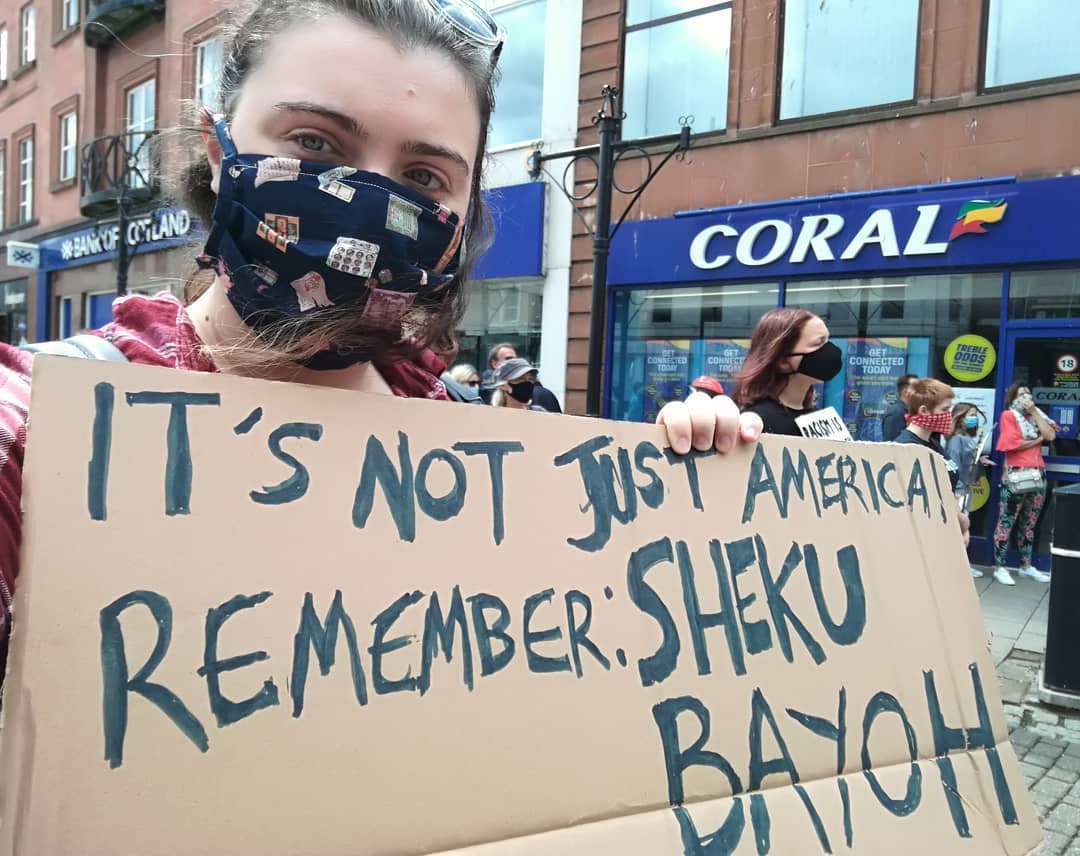 BANK OF SCOTLAND
CORAL
GET
CONNECTED
TODAY
GET
CONNECTED
TODAY
GET
CONNECTED
TODAY
TREBLE
ODDS
18
CORAL
RACISM IS
IT'S NOT JUST AMERICA!
REMEMBER: SHEKU
BAYOH